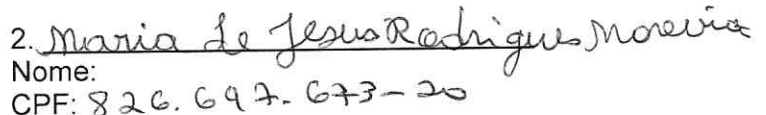 2. Maria de Jesus Rodrigues Moreira
Nome:
CPF: 826.697.673-20